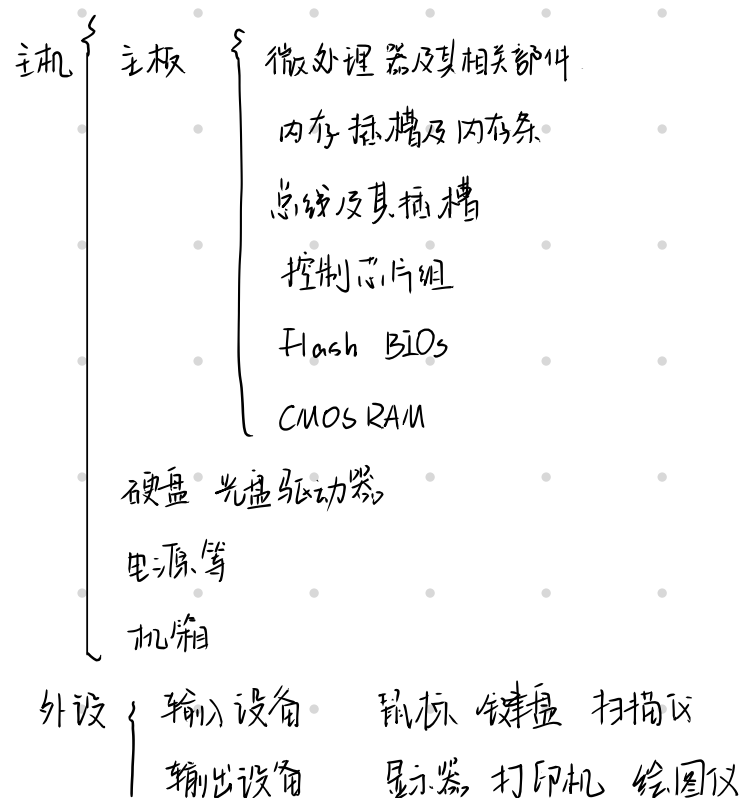 主机 主板 微处理器及其相关部件
内存插槽及内存条
总线及其插槽
控制芯片组
Flash BIOS
CMOS RAM
硬盘 光盘驱动器
电源等
机箱
外设 输入设备 鼠标 键盘 扫描仪
输出设备 显示器 打印机 绘图仪